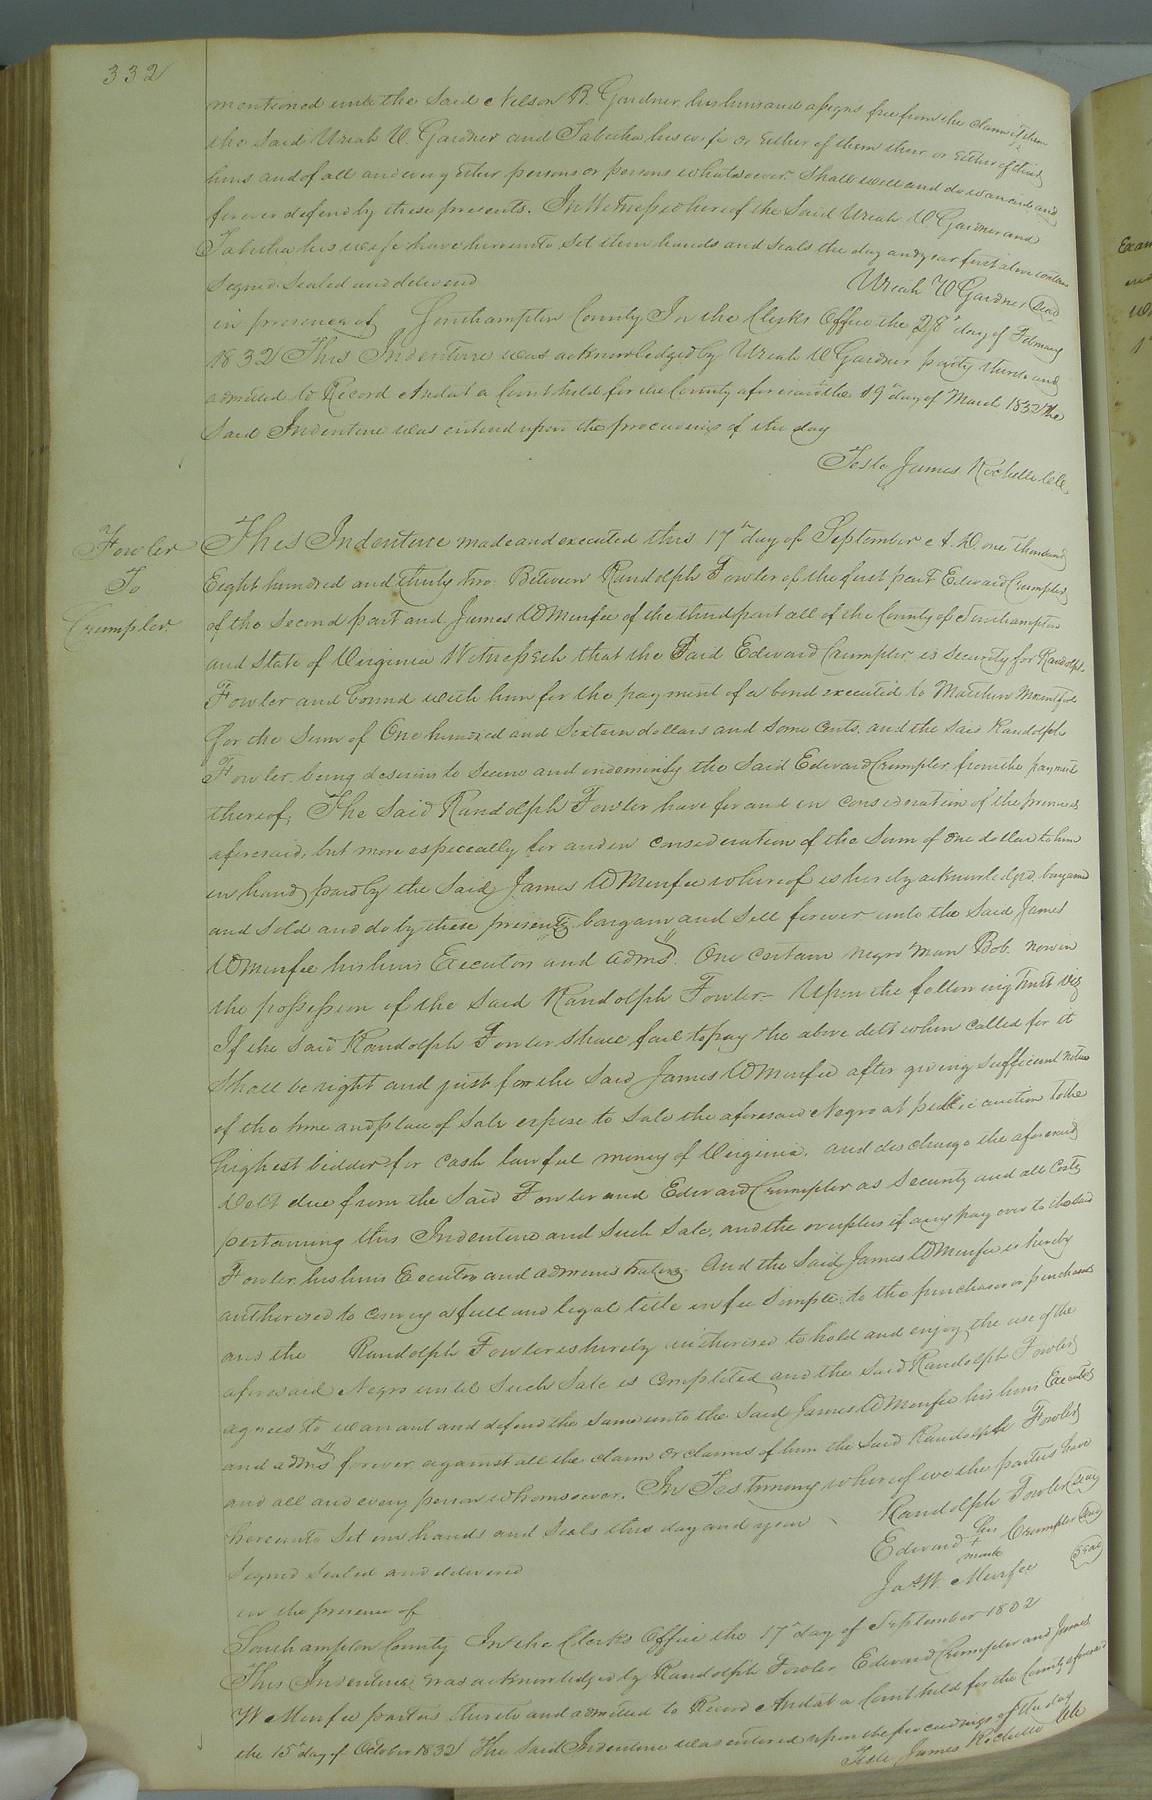 332
mentioned unto the Said Nelson B. Gardner his heirs and assigns free from the claim of them
the Said Uriah W. Gardner and Tabitha his wife or either of them their or either of their
heirs and of all and every other persons or person whatsoever Shall will and do warrant and
forever defend by these presents. In Witness whereof the Said Uriah W Gardner and
Tabitha his wife have hereunto Set their hands and Seals the day and year first above written
Signed Sealed and delivered Uriah W Gardner Seal
in presence of Southampton County In the Clerks Office the 28" day of February
1832 This Indenture was acknowledged by Uriah W Gardner party thereto and
admitted to Record And at a Court held for the County aforesaid the 19" day of March 1832 The
Said Indenture was entered upon the proceedings of the day
Teste James Rochelle Clk.
Fowler
To
Crumpler
This Indenture made and executed this 17th day of September A. D. one thousand
Eight hundred and thirty two. Between Randolph Fowler of the first part Edward Crumpler
of the Second part and James W Murfee of the third part all of the County of Southampton
and State of Virginia Witnesseth that the Said Edward Crumpler is Security for Randolph
Fowler and bound with him for the payment of a bond executed to Matthew
for the Sum of One hundred and Sixteen dollars and Some Cents. and the Said Randolph
Fowler being desirous to Secure and indemnify the Said Edward Crumpler from the payment
thereof; The Said Randolph Fowler have for and in consideration of the premises
aforesaid, but more especcially for and in consideration of the Sum of One dollar to him
in hand paid by the Said James W Murfee whereof is hereby acknowledged. bargained
and Sold and do by these presents bargain and Sell forever unto the Said James
W Murfee his heirs Executors and Admrs. One certain negro man Bob. now in
the possession of the Said Randolph Fowler- Upon the following trust viz
If the Said Randolph Fowler shall fail to pay the above debt when called for it
Shall be right and just for the Said James W Murfee after giving Sufficient notice
of the time and place of Sale expose to Sale the aforesaid Negro at public auction to the
highest bidder for cash lawful money of Virginia. and discharge the aforesaid
Debt due from the Said Fowler and Edward Crumpler as Security and all Costs
pertaining this Indenture and Such Sale, and the overplus if any pay over to the Said
Fowler his heirs Executor and administrators. And the Said James W Murfee is hereby
authorised to convey a full and legal title in fee Simple to the purchaser or purchasers
and the Randolph Fowler is hereby authorised to hold and enjoy the use of the
aforesaid Negro until Such Sale is Completed and the Said Randolph Fowler
agrees to warrant and defend the Same unto the Said James W Murfee his heirs Executors
and admrs forever against all the claim or claims of him the Said Randolph Fowler
and all and every person whomsoever. In Testimony whereof we the parties have
hereunto Set our hands and Seals this day and year Randolph Fowler Seal
Signed Sealed and delivered Edward his + mark Crumpler Seal
in the presence of Jas W. Murfee Seal
Southampton County In the Clerks Office the 17" day of September 1832
This Indenture was acknowledged by Randolph Fowler Edward Crumpler and James
W Murfee parties thereto and admitted to Record And at a Court held for the County aforesaid
the 15" day of October 1832 The Said Indenture was entered upon the proceedings of the day
Teste James Rochelle Clk